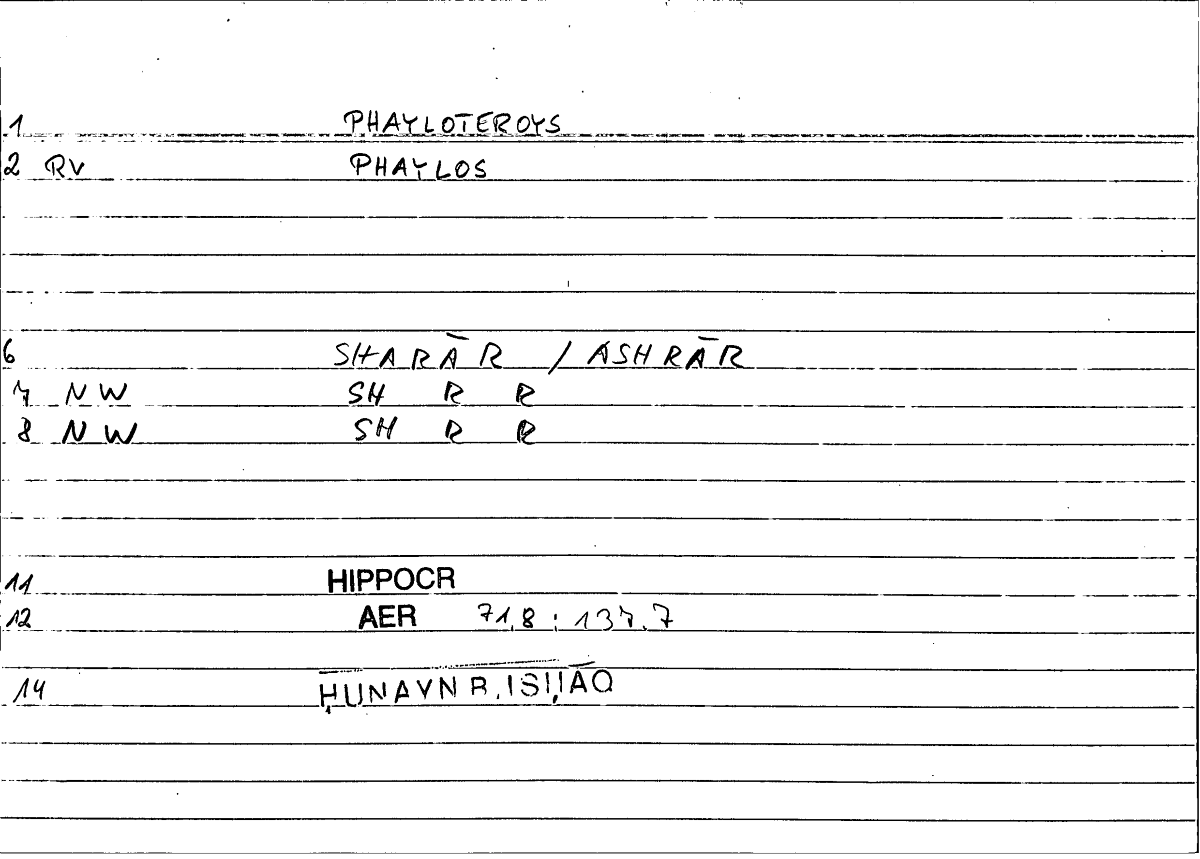 1 PHAYLOTEROYS
2 RV PHAYLOS
6 SHARĀR / ASHRĀR
7 NW SH R R
8 NW SH R R
11 HIPPOCR
12 AER 71,8 : 137.7
14 ḤUNAYN B. ISḤĀQ